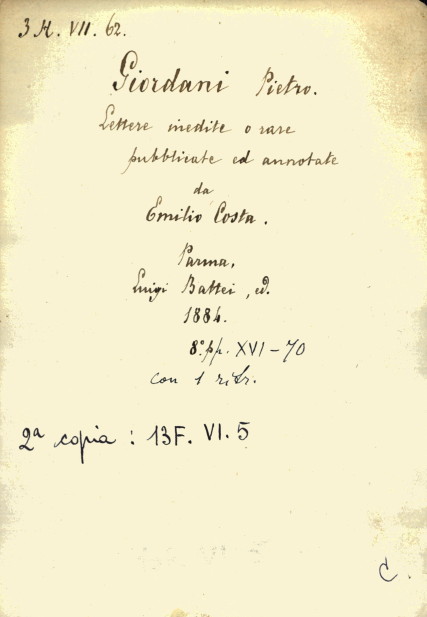 3 H. VII. 62.
Giordani Pietro.
Lettere inedite o rare
pubblicate ed annotate
da
Emilio Costa.
Parma,
Luigi Battei, ed.
1884.
8º. pp. XVI-70
con 1 ritr.
2ª copia : 13F. VI. 5
C.